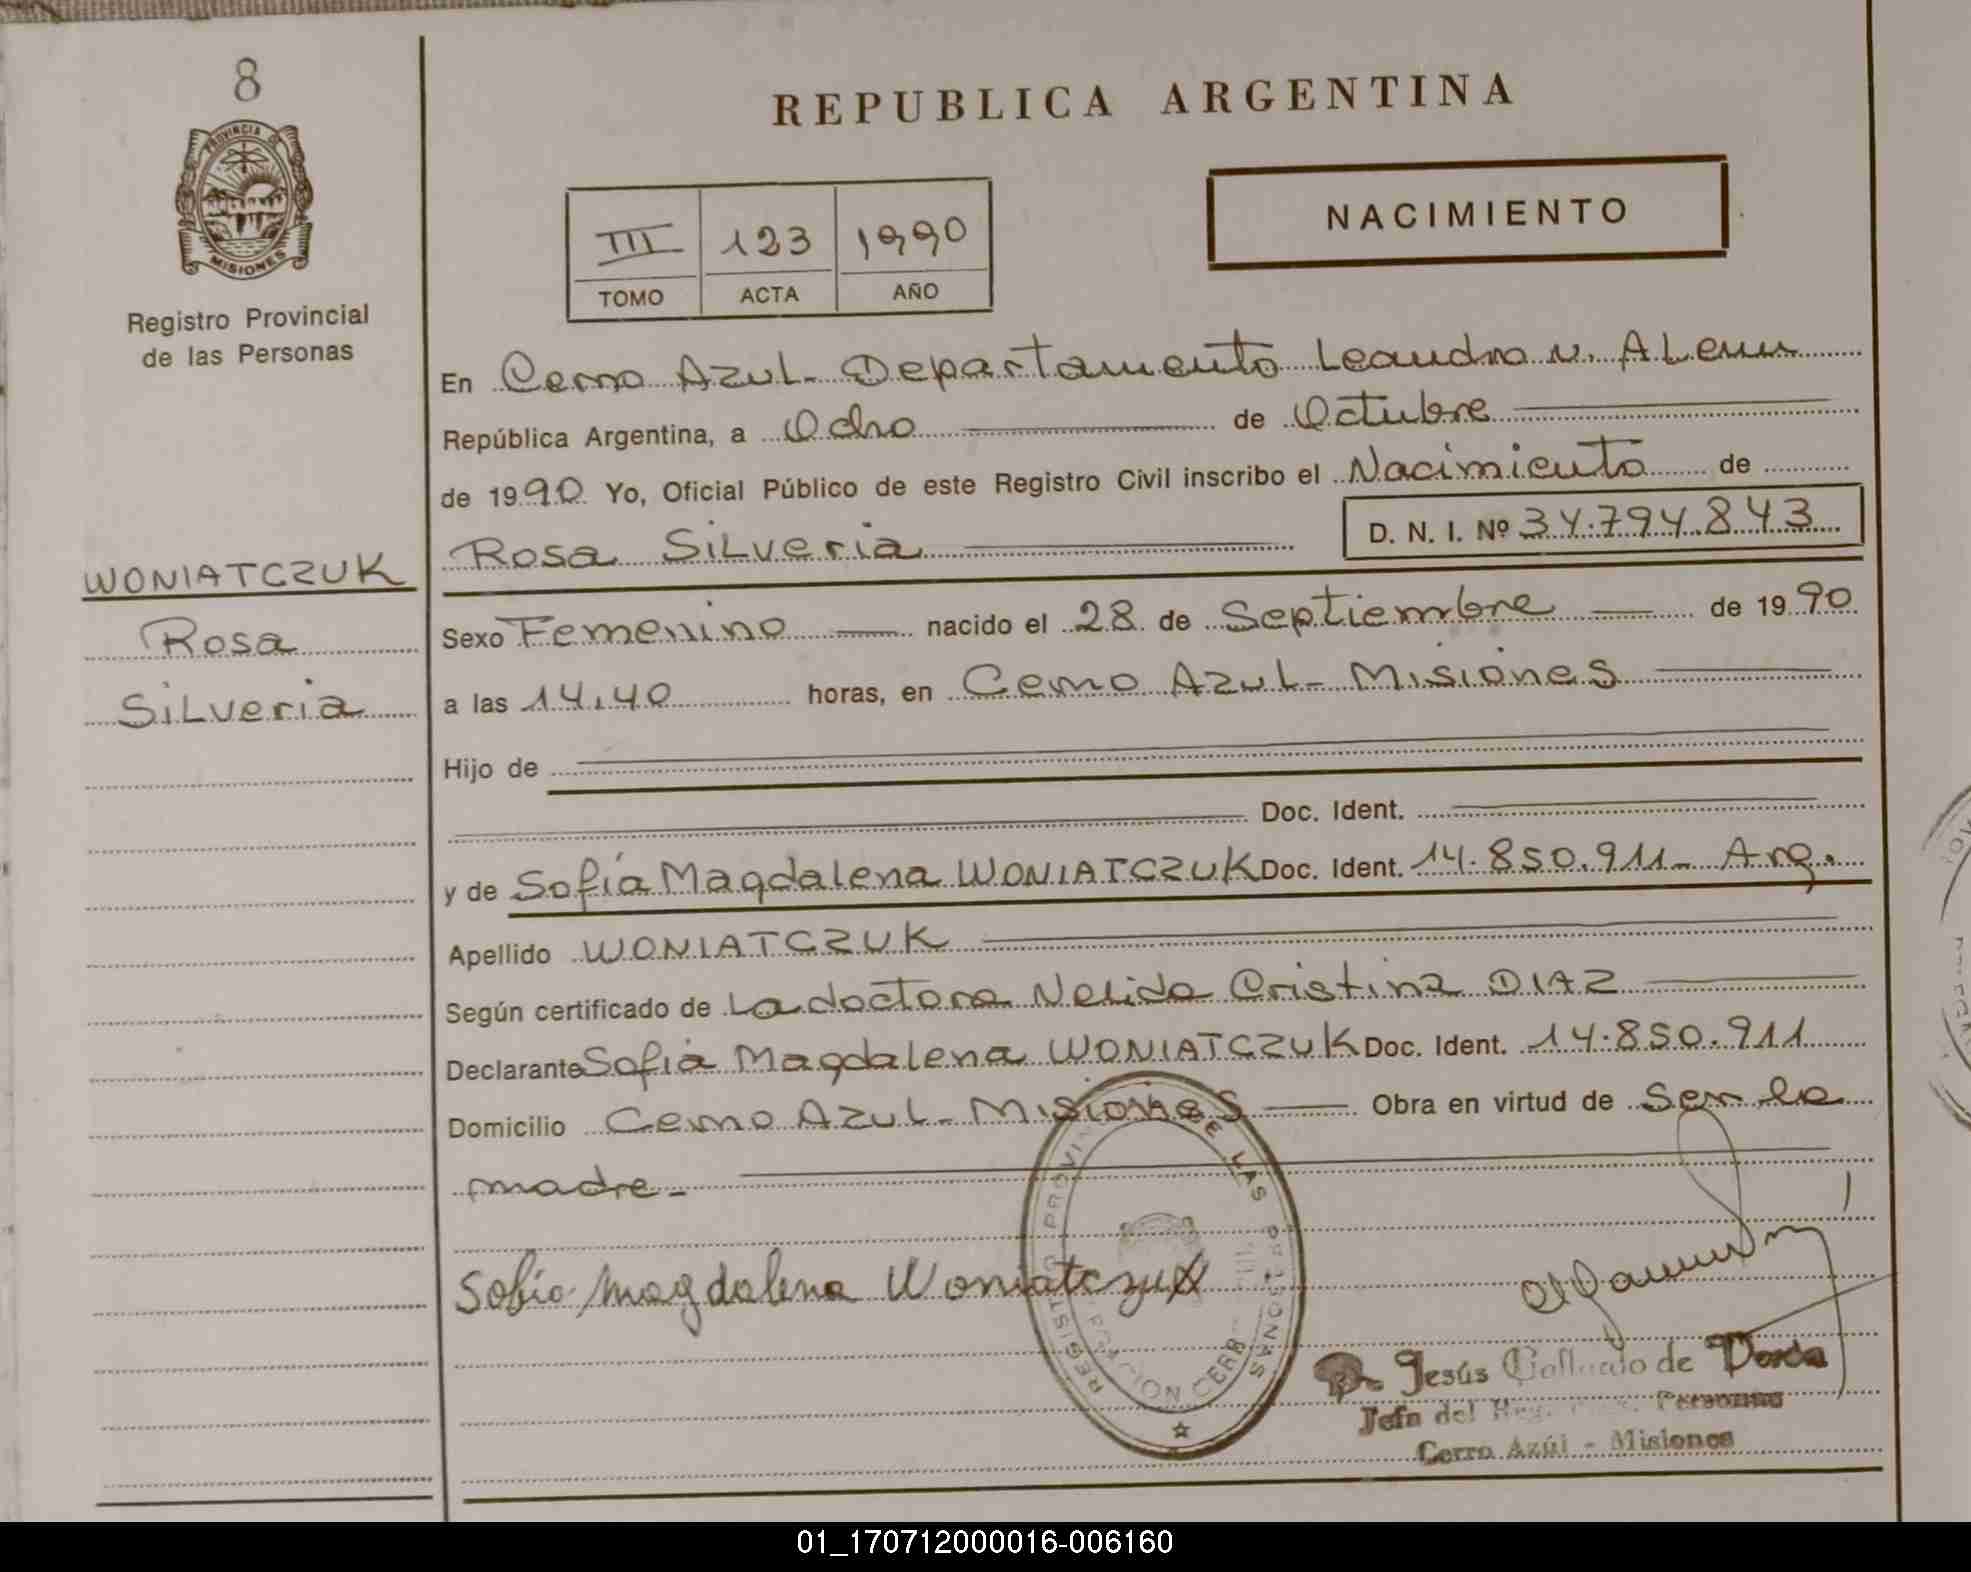 8
PROVINCIA DE
MISIONES
Registro Provincial
de las Personas
WONIATCZUK
Rosa
Silveria
REPUBLICA ARGENTINA
NACIMIENTO
III 123 1990
TOMO ACTA AÑO
En Cerro Azul - Departamento Leandro N. Alem
República Argentina, a Ocho de Octubre
de 1990 Yo, Oficial Público de este Registro Civil inscribo el Nacimiento de
Rosa Silveria D. N. I. Nº 34.794.843
Sexo Femenino nacido el 28 de Septiembre de 1990
a las 14,40 horas, en Cerro Azul - Misiones
Hijo de
Doc. Ident.
y de Sofía Magdalena WONIATCZUK Doc. Ident. 14.850.911 - Arg.
Apellido WONIATCZUK
Según certificado de La doctora Nelida Cristina DIAZ
Declarante Sofia Magdalena WONIATCZUK Doc. Ident. 14.850.911
Domicilio Cerro Azul - Misiones Obra en virtud de Ser la
madre -
Sofia Magdalena Woniatczuk
REGISTRO PROVINCIAL DE LAS PERSONAS
Jesús de
Jefa del Personas
Cerro Azúl - Misiones
01_170712000016-006160